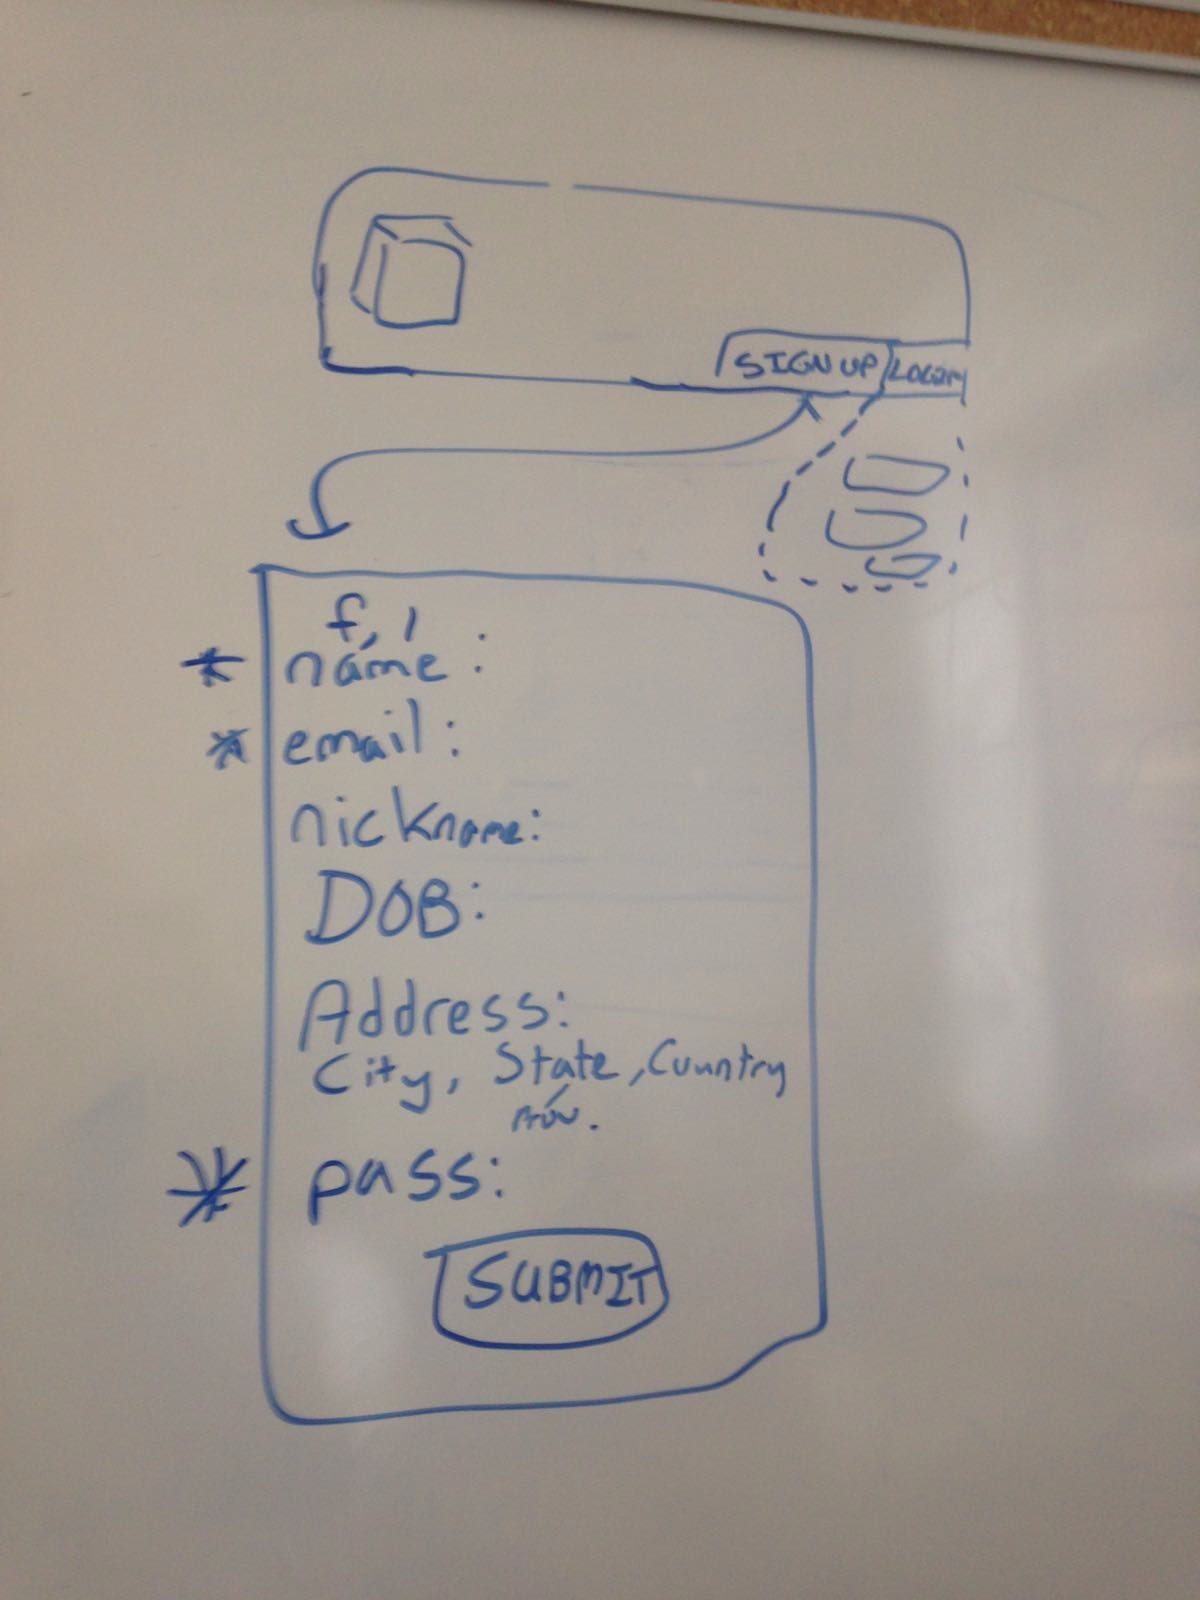 SIGN UP LOGIN
f, l
* name:
* email:
nickname:
DOB:
Address:
City, State, Country
Prov.
* pass:
SUBMIT